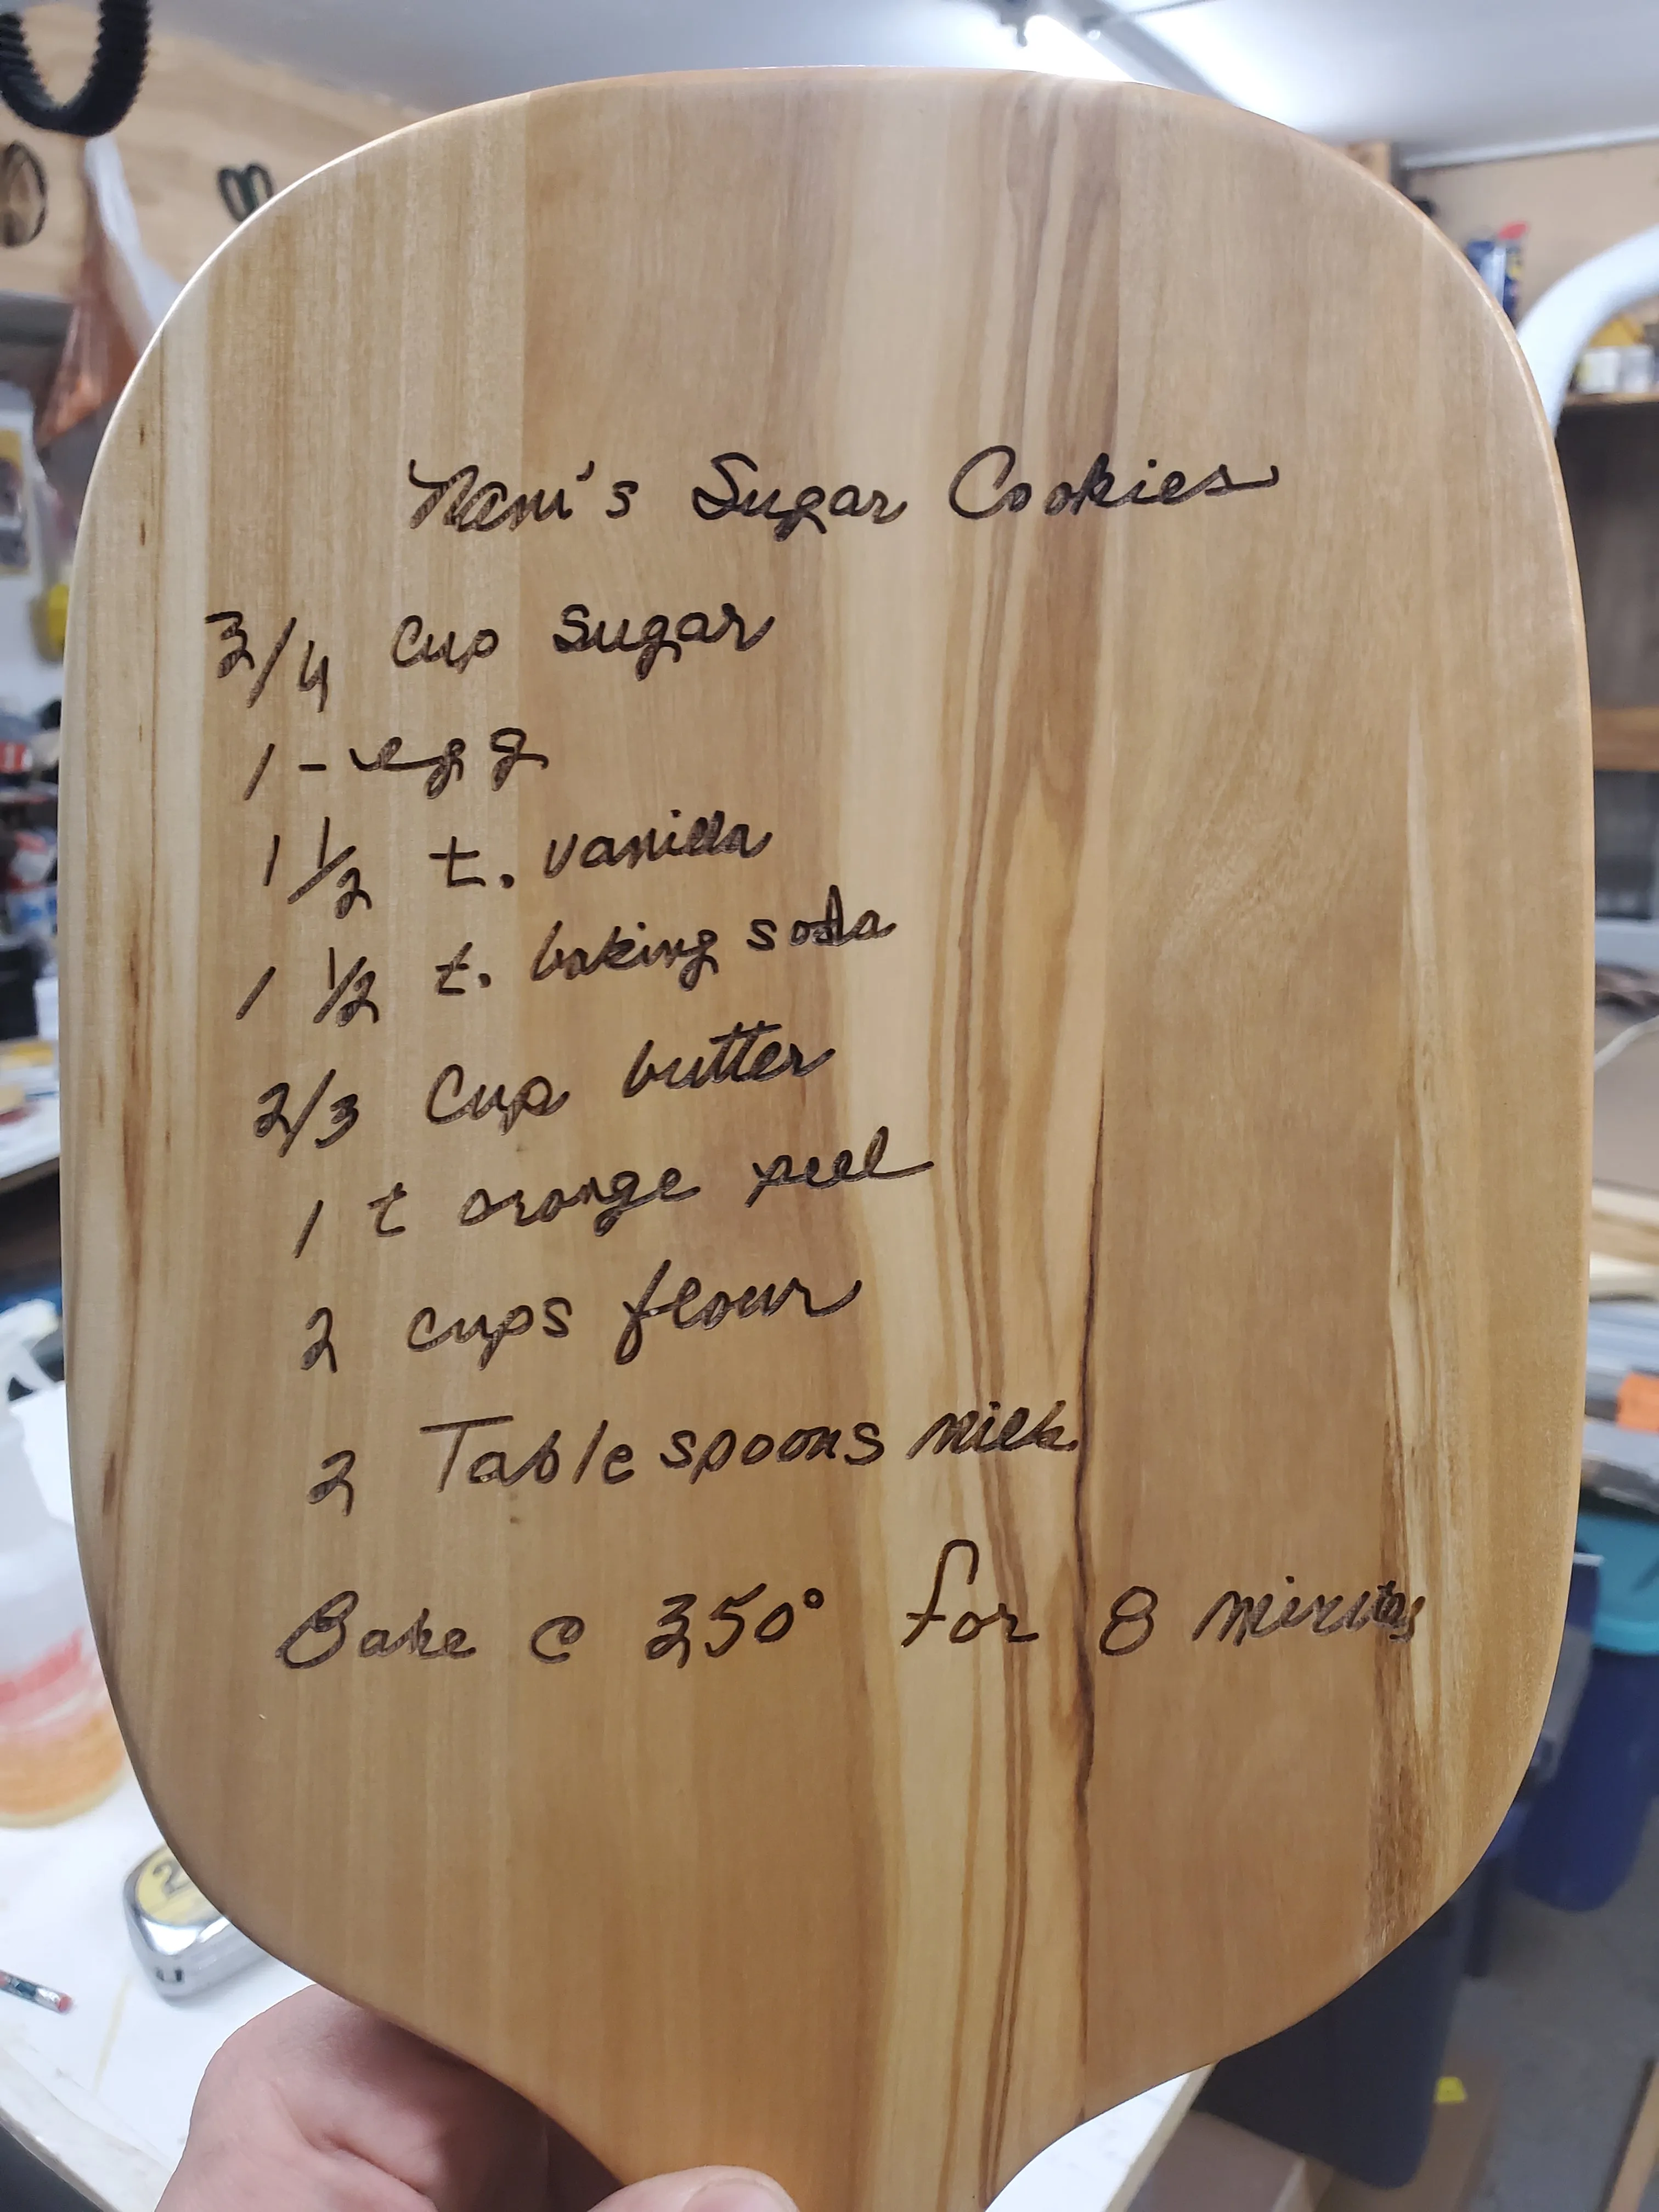 Nani's Sugar Cookies
3/4 Cup Sugar
1 - egg
1 1/2 t. vanilla
1 1/2 t. baking soda
2/3 Cup butter
1 t orange peel
2 cups flour
2 Tablespoons milk
Bake @ 350° for 8 minutes